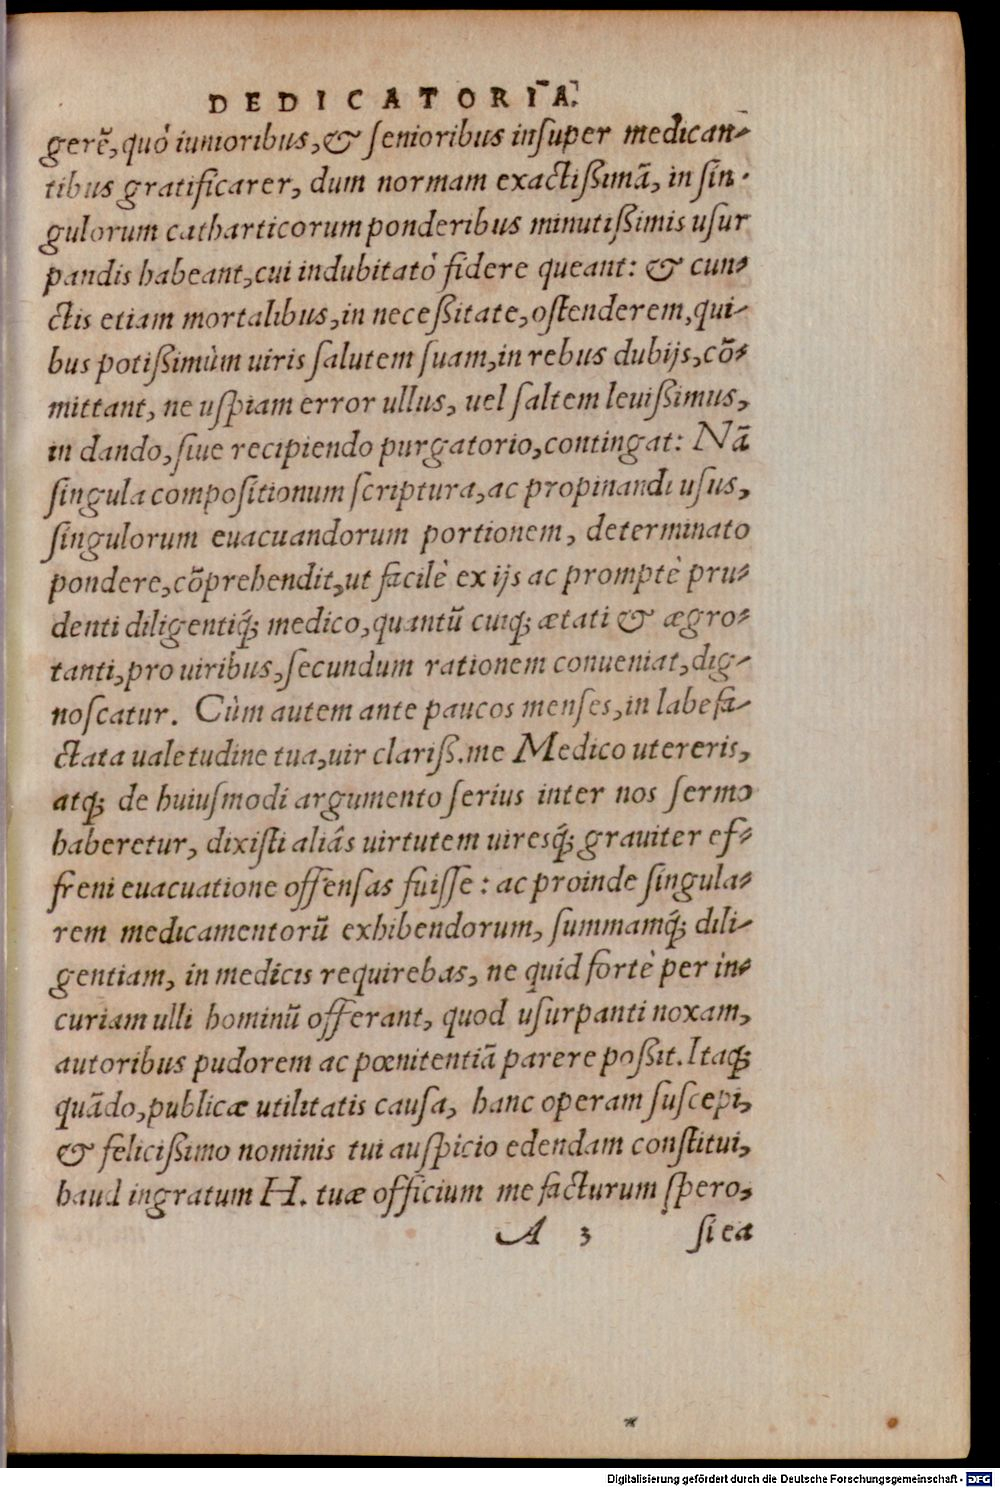 DEDICATORIA.
gerē, quò iunioribus, & senioribus insuper medican-
tibus gratificarer, dum normam exactißimā, in sin-
gulorum catharticorum ponderibus minutißimis usur
pandis habeant, cui indubitatò fidere queant: & cun-
ctis etiam mortalibus, in neceßitate, ostenderem, qui-
bus potißimùm uiris salutem suam, in rebus dubijs, cō-
mittant, ne uspiam error ullus, uel saltem leuißimus,
in dando, siue recipiendo purgatorio, contingat: Nā
singula compositionum scriptura, ac propinandi usus,
singulorum euacuandorum portionem, determinato
pondere, cōprehendit, ut facilè ex ijs ac promptè pru-
denti diligentiq́; medico, quantū cuiq; ætati & ægro-
tanti, pro uiribus, secundum rationem conueniat, dig-
noscatur. Cùm autem ante paucos menses, in labefa-
ctata ualetudine tua, uir clariß. me Medico utereris,
atq; de huiusmodi argumento serius inter nos sermo
haberetur, dixisti aliâs uirtutem uiresq́; grauiter ef-
freni euacuatione offensas fuisse: ac proinde singula-
rem medicamentorū exhibendorum, summamq́; dili-
gentiam, in medicis requirebas, ne quid fortè per in-
curiam ulli hominū offerant, quod usurpanti noxam,
autoribus pudorem ac pœnitentiā parere poßit. Itaq;
quādo, publicæ utilitatis causa, hanc operam suscepi,
& felicißimo nominis tui auspicio edendam constitui,
haud ingratum H. tuæ officium me facturum spero,
A 3 si ea
Digitalisierung gefördert durch die Deutsche Forschungsgemeinschaft - DFG